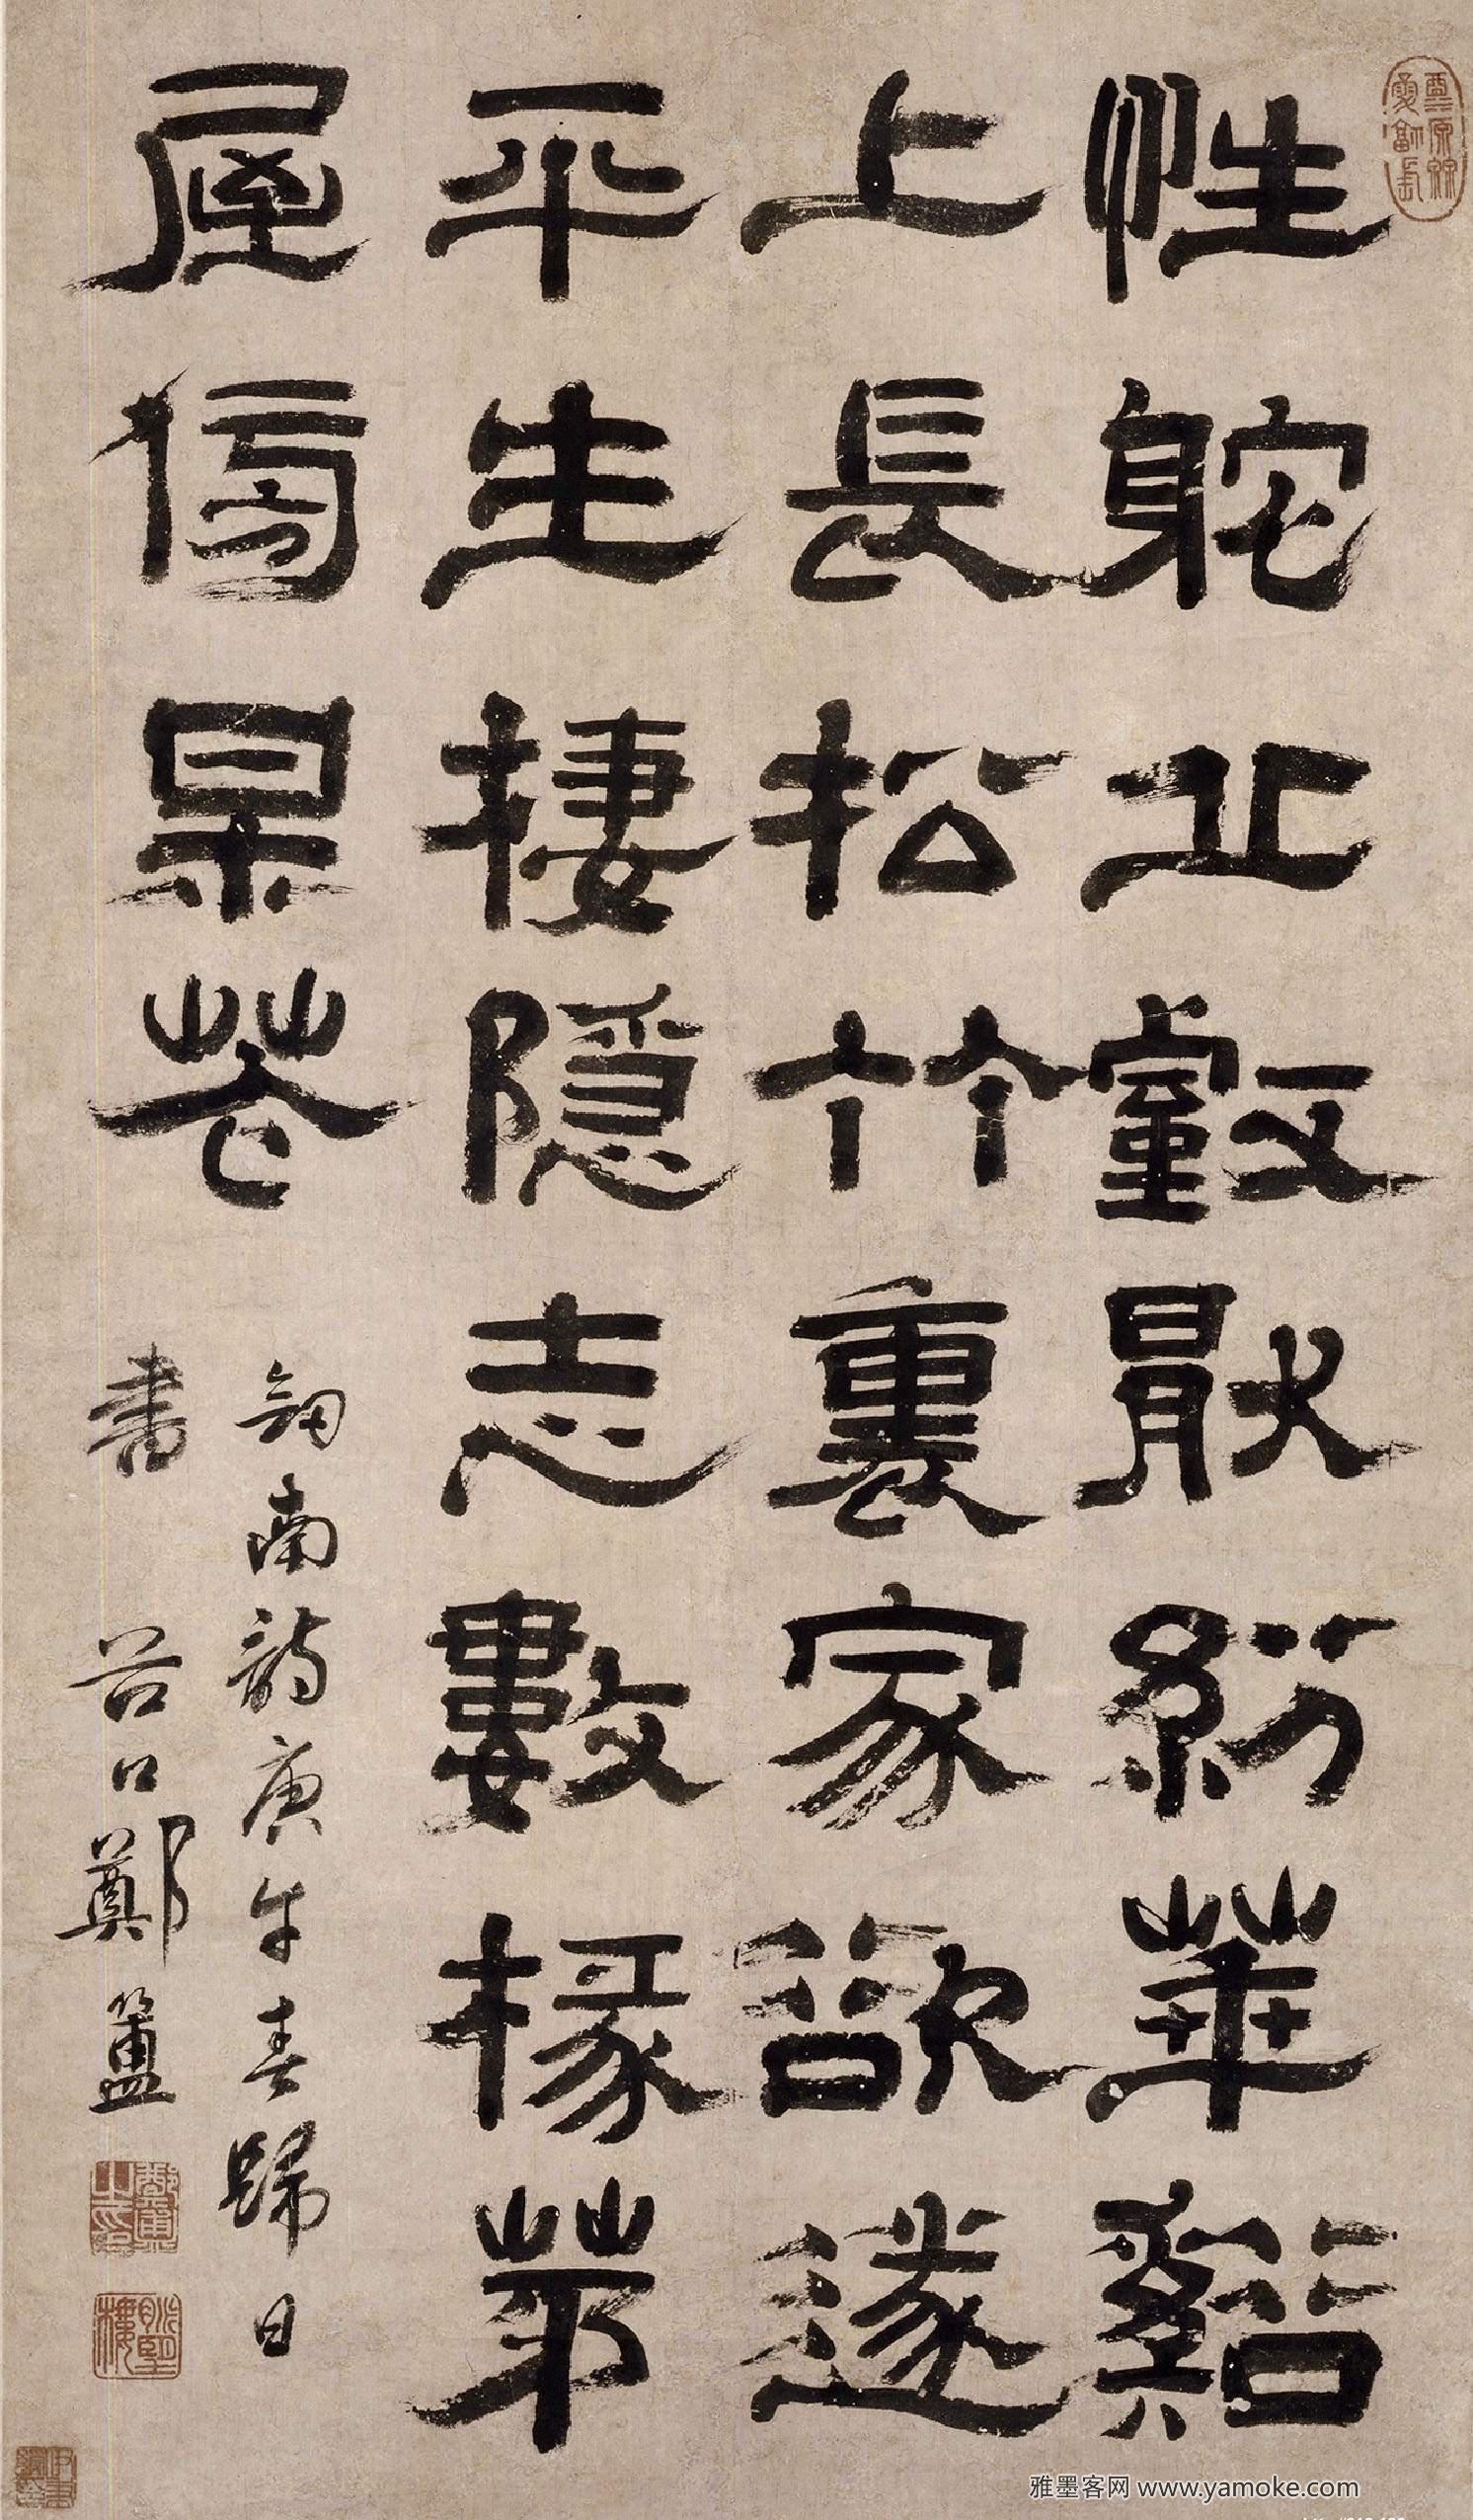 性躭丘壑厭紛華谿
上長松竹裏家欲遂
平生棲隱志數椽茅
屋傍某花
劒南詩庚午春歸日
書 谷口鄭簠
鄭簠之印
雅墨客网 www.yamoke.com